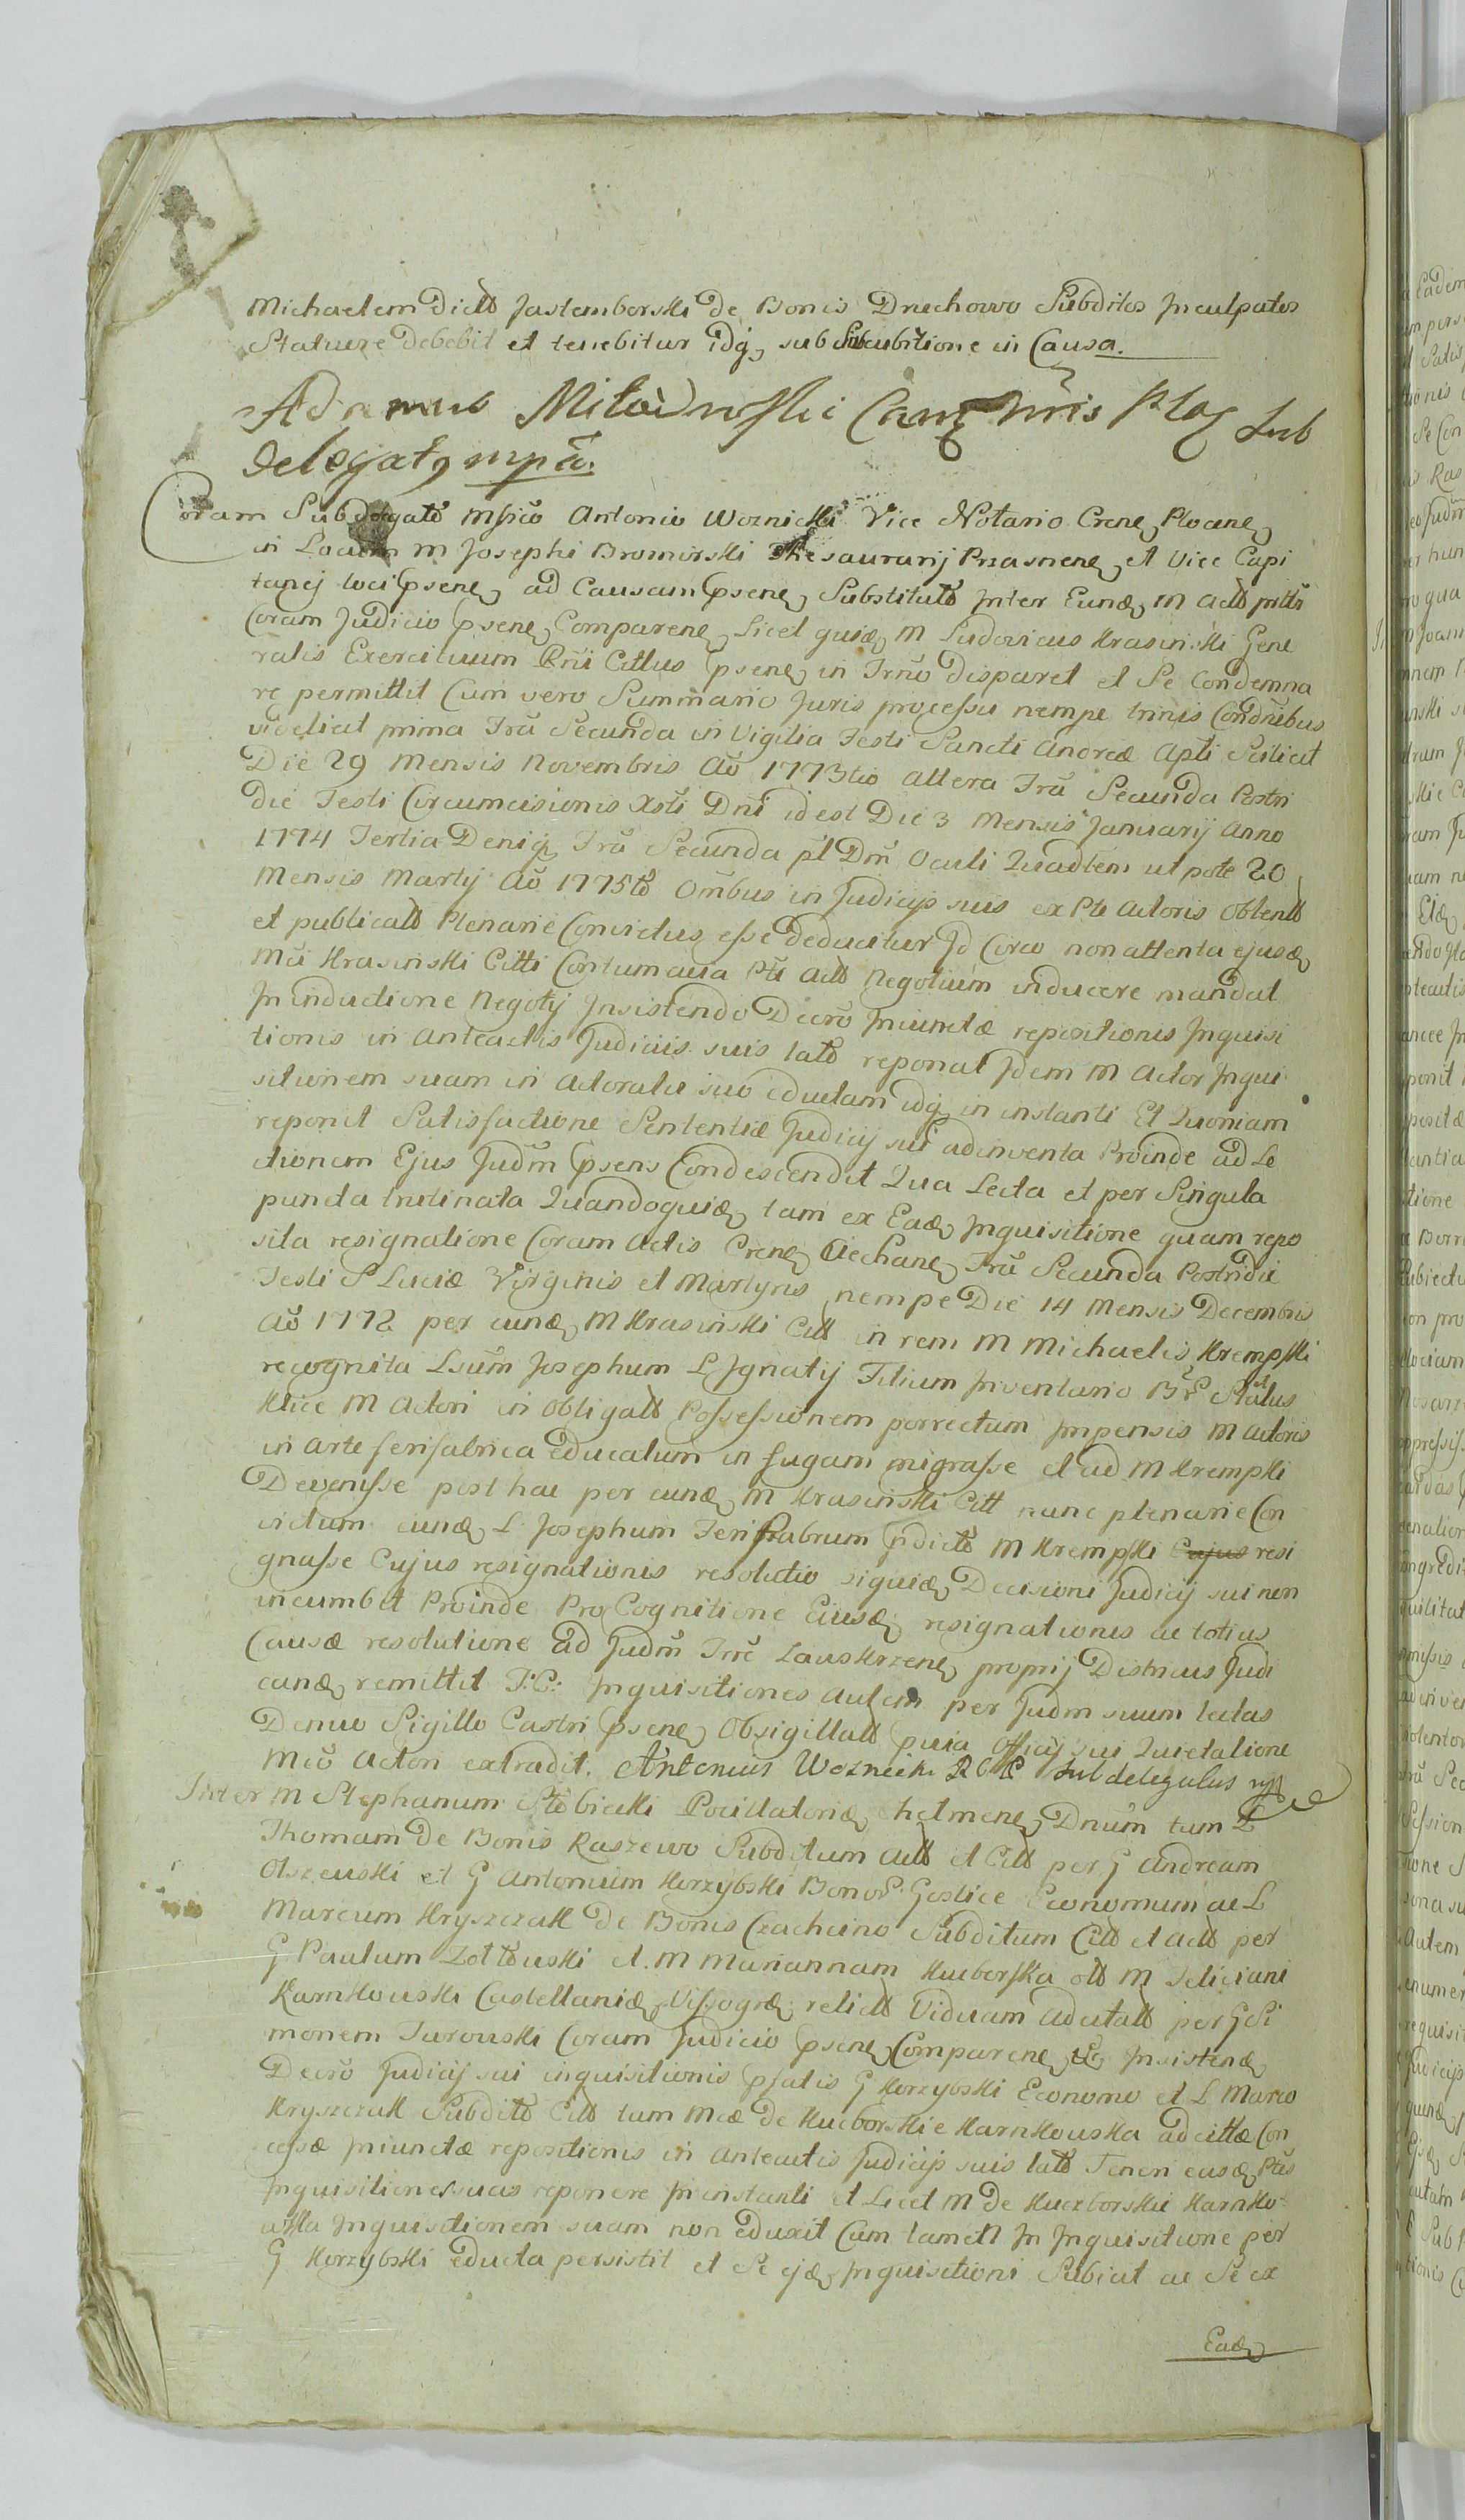 Michaelem Dictt Jastemborski De Bonis Dnechowo Subditos Inculpatos
Statuere debebit et tenebitur idq, sub succubitione in Causa.
Adamus Milodroski Sub
delegatg mpã.
Coram Subdelegato Mfico Antonio Woznicki Vice Notario Crene, Plocene,
in Locum M Josephi Bromirski Thesaurarij Prasnene, et Vice Capi
tanej loci psene, ad Causam psene, Substituto Inter Eund, M Actt
Coram Judicio psene, Comparene, Licet quid, M Ludovicus Krasinski Gene
ralis Exercituum Cittus psene, in Trno disparet et Se Condemna
re permittit Cum vero Summario Juris processu nempe trinis Condnibus
videlicet prima Fra Secunda in Vigilia Festi Sancti Andreæ Apti Scilicet
Die 29 Mensis Novembris Ao 1773tio altera Fra Secunda Postri
die Festi Circumcisionis Xsti Dni idest Die 3 Mensis Januarij Anno
1774 Tertia Deniq, Fra Secunda pt Dm Oculi Quadlem utpote 20
Mensis Martij Ao 1775to Ombus in Judicijs suis ex Pte Actoris obtentt
et publicatt Plenarie Convictus esse deducitur Id Circo non attenta ejusd,
Mci Krasinski Citti Contumacia Pti Actt Negotium inducere mandat
In inductione Negotij Insistendo Decro Iniunctæ repositionis Inquisi
tionis in Anteactis Judiciis suis lato reponat Idem M Actor Inqui
sitionem suam in Actoratu suo eductam idq, in instanti Et Quoniam
reponit Satisfactione Sententiæ Judicij sui adinventa Proinde ad Le
ctionem Ejus Judm psens Condescendit Qua Lecta et per Singula
puncta trutinata Quandoquid, tam ex Ead, Inquisitione quam repo
sita resignatione Coram Actis Crene, Ciechane, Fra Secunda Postridie
Festi S Luciæ Virginis et Martyris nempe Die 14 Mensis Decembris
Ao 1772 per eund, M Krasinski Citt in rem M Michaelis Krempski
recognita Lsum Josephum L Ignatij Filium Inventario
M Actori in obligatt Possessionem porrectum Impensis M Actoris
in arte ferifabrica educatum in fugam migrasse et ad M Krempski
Devenisse post hac per eund, M Krasinski Citt nunc plenarie Con
victum eund, L Josephum Ferifabrum pdicto M Krempski Cujus resi
gnasse Cujus resignationis resolutio siquid, Decisioni Judicij sui non
incumbit Proinde Pro Cognitione Eiusd, resignationis ac totius
Causæ resolutione ad Judm Trre Zauskrzene, proprij Districtus Judi
cand, remittit T:C: Inquisitiones autem per Judm suum lectas
Denuo Sigillo Castri psene, Obsigillatt pvia Officij sui Quietatione
Mco Actori extradit. Antonius Woznicki Subdelegatus
Inter M Stephanum Pocillatorid, Chelmene, Dnum tum L
Thomam de Bonis Raszewo Subditum Actt et Citt per G Andream
Olszewski et G Antonium Korzybski Bonor Goslice Economum ac L
Marcum Kryszczak de Bonis Czachcino Subditum Citt et Actt per
G Paulum Zottowski et M Mariannam Kucborska olt M Feliciani
Karnkowski Castellanid, Vissogrd, relictt Viduam adcitatt per G Si
monem Turowski Coram Judicio psene, Comparene, Insistend,
Decro Judicij sui inquisitionis psatis G Korzybski Economo et L Marco
Kryszczak Subdito Citt tum Mcæ de Kucborskie Karnkowska adcittæ Con
cessæ Iniunctæ repositionis in Anteactis Judicijs suis lato Teneri easd, Ptes
Inquisitiones suas reponere in instanti et Licet M de Kucborskie Karnko-
wska Inquisitionem suam non eduxit Cum tamen In Inquisitione per
G Korzybski educta persistit et Se ejd, Inquisitioni Subicit ac Se ex
Ead,